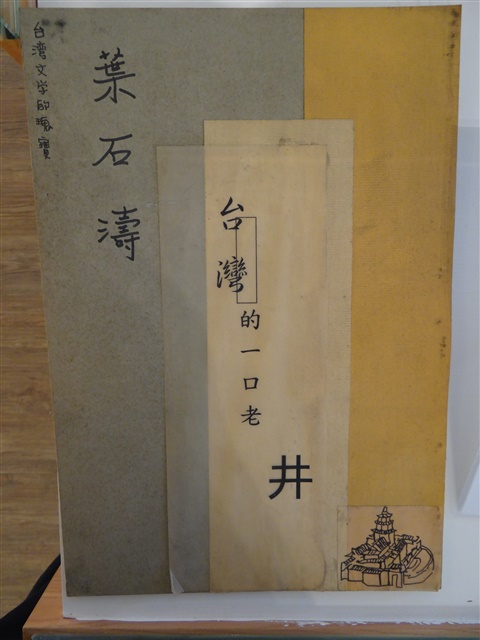 台灣文学的瑰寶
葉石濤
台灣的一口老井